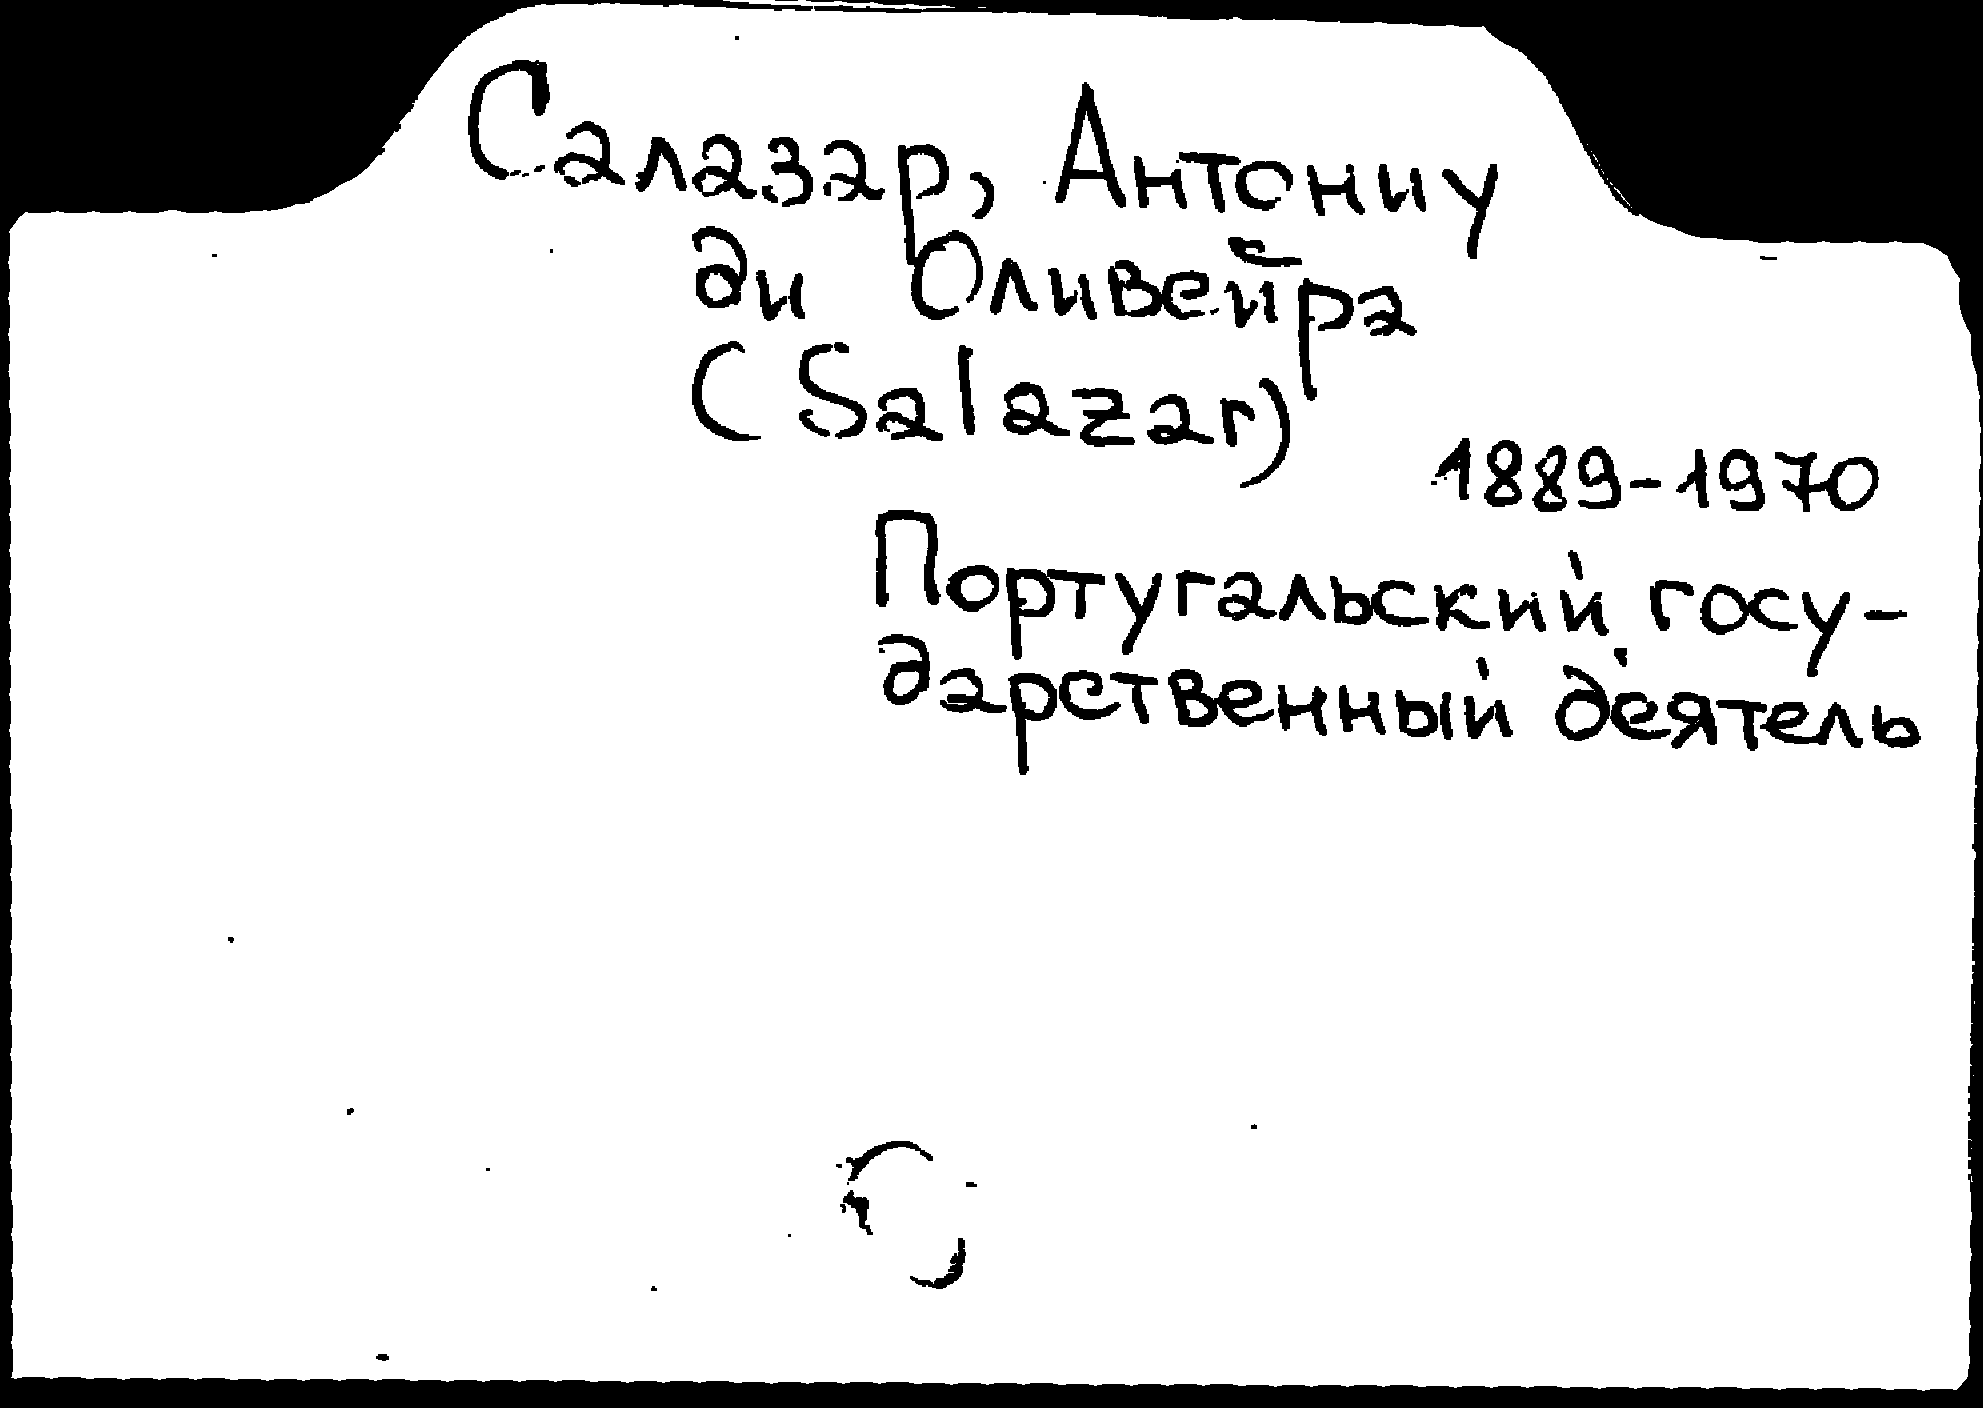 Салазар, Антониу
ди Оливейра
(Salazar)
1889-1970
Португальский госу-
дарственный деятель